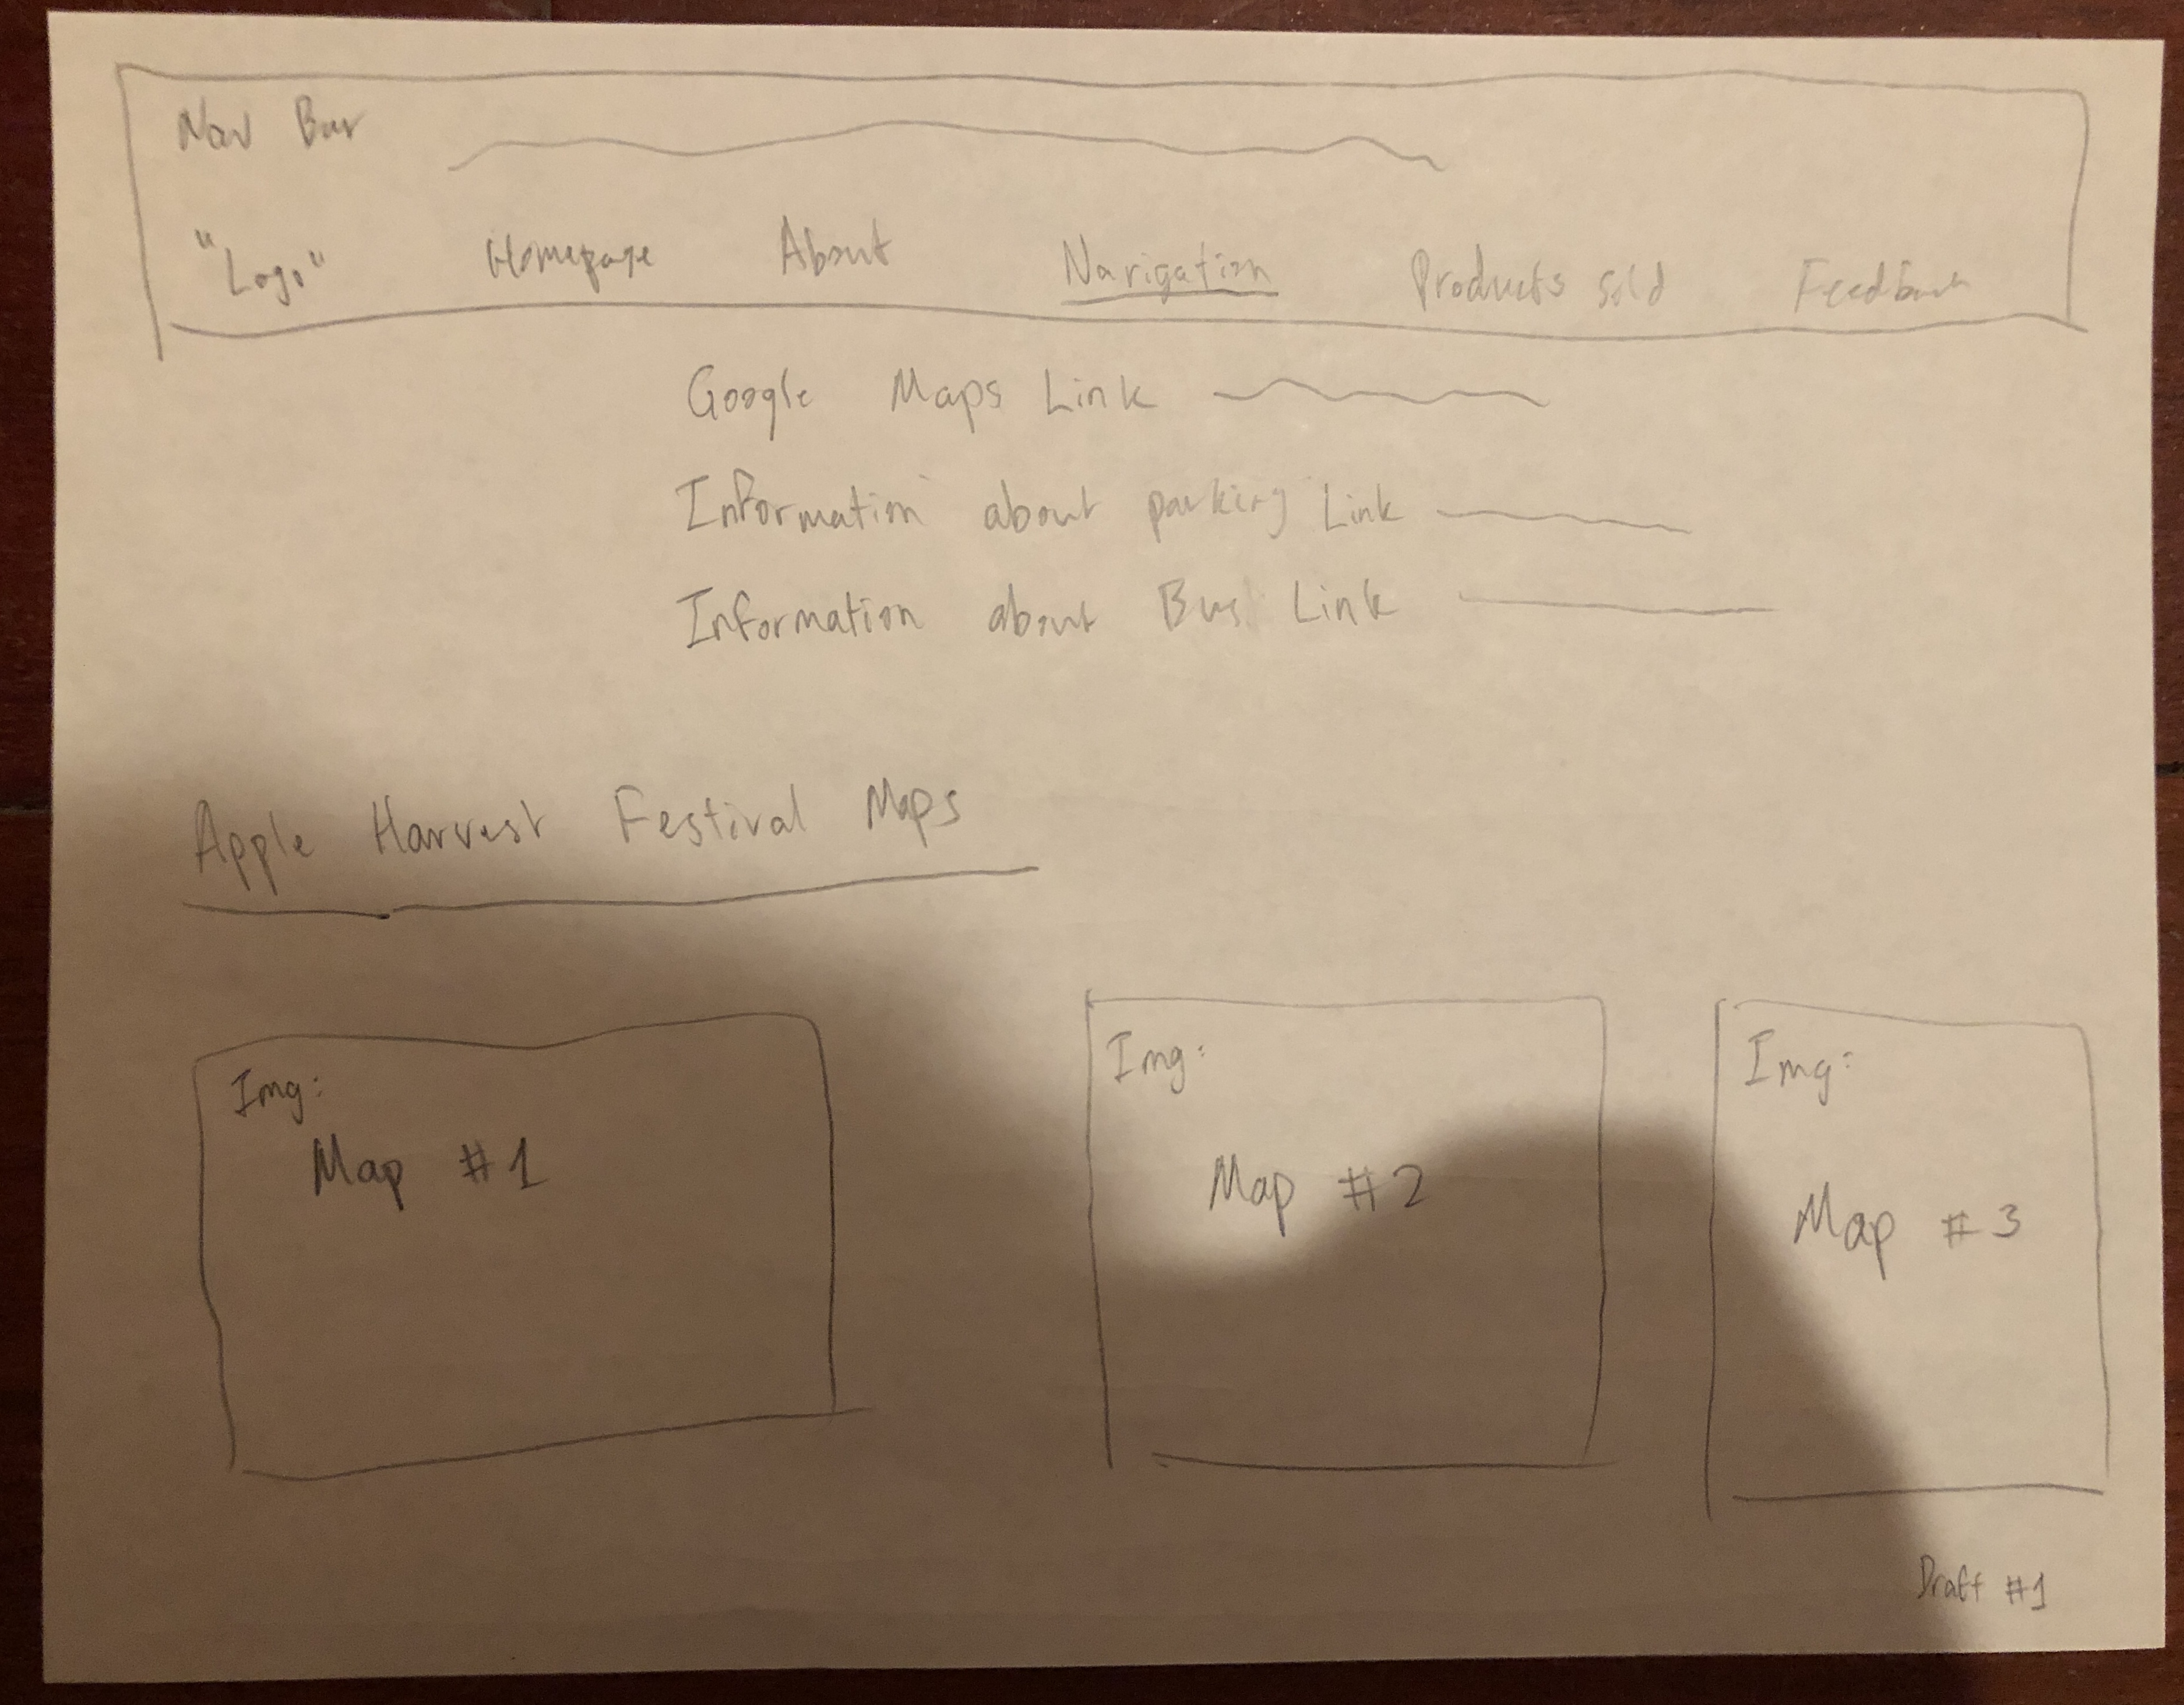 Nav Bar
"Logo" Homepage About Navigation Products Sold Feedback
Google Maps Link
Information about parking Link
Information about Bus Link
Apple Harvest Festival Maps
Img: Img: Img:
Map #1 Map #2 Map #3
Draft #1